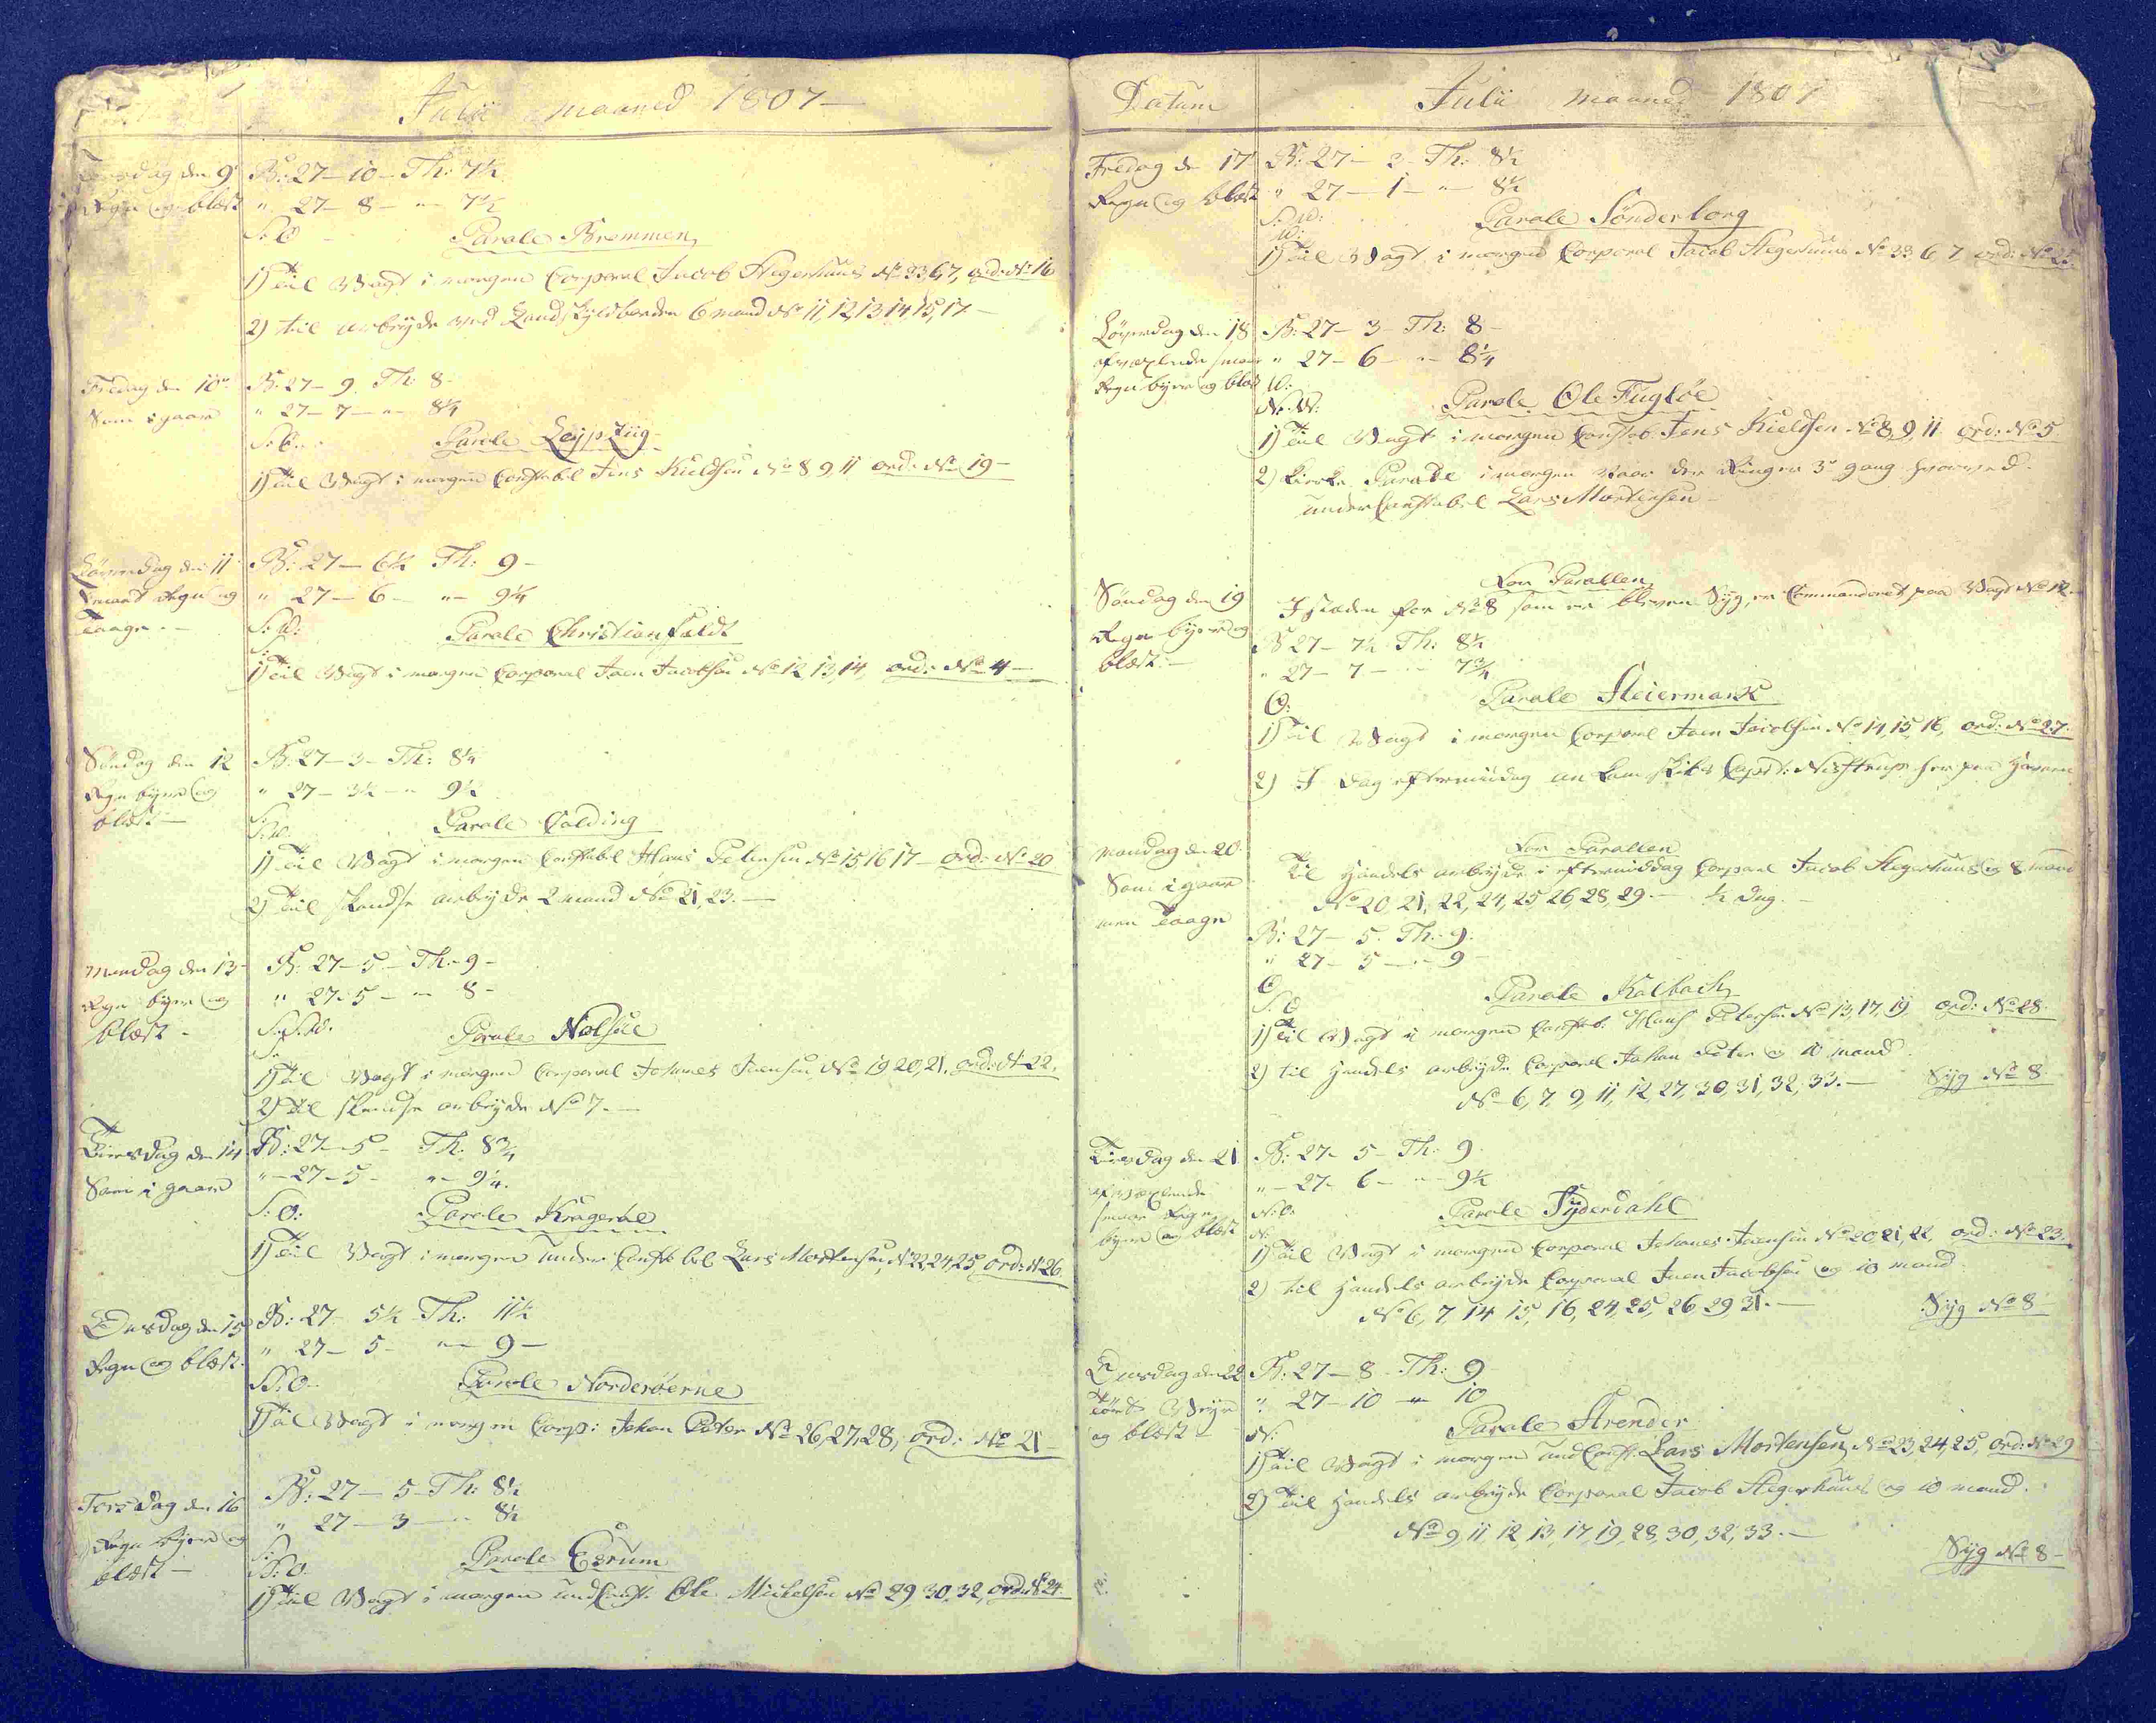 Julii maaned 1807
Torsdag den 9de
Regn og blæst
B: 27 – 10 – Th: 7½
" 27 – 8 – " – 7½
S: O
Parole Bremmen
1) Til Vagt i morgen Corporal Jacob Hegerhuus No 33, 6, 7, ord: No 16
2) til arbeyde ved Landskyldboeden 6 mand No 11, 12, 13, 14, 15, 17 –
Fredag den 10de
Som i gaar
B: 27 – 9. Th: 8 –
" 27 – 7 – " – 8¼
Parole Leypziig
1) Til Vagt i morgen Constabel Jens Kieldsen No 8, 9, 11 ord: No 19 –
Løverdag den 11
Smaat Regn og
Taage. –
B: 27 – 6½ Th: 9 –
" 27 – 6 – " – 9¼
S: W:
Parole Christiansfeldt
1) Til Vagt i morgen Corporal Joen Jacobsen No 12, 13, 14, ord: No 4 –
Søndag den 12
Regn byger og
blæst –
B: 27 – 3 – Th: 8¼
" 27 – 3½ – " 9½
S: W:
Parole Colding
1) Til Vagt i morgen Constabel Hans Petersen No 15 16 17 – ord: No 20
2) Til skandse arbeyde 2 mand No 21, 23. –
Mandag den 13
Regn byger og
blæst –
B: 27 – 5 – Th: – 9 –
" 27 – 5 – " 8 –
S. S. W.
Parole Nolsøe
1) Til Vagt i morgen Corporal Johanes Joensen No 19 20, 21. ord: No 22.
2) Til skandse arbeyde No 7. –
Tirsdag den 14
Som i gaar
B: 27 – 5 – Th: 8¾
" – 27 – 5 – " – 9¼.
S: O:
Parole Kragerøe
1) Til Vagt i morgen Under Constabel Lars Mortensen, No 22, 24, 25, ord: No 26
Onsdag den 15
Regn og blæst.
B: 27 – 5½ Th: 11½
" 27 – 5 – " – 9 –
Parole Norderøerne
1) Til Vagt i morgen Corp: Johan Peter No 26, 27, 28, ord: No 21 –
Torsdag den 16
Regn byger og
blæst –
B: 27 – 5 – Th: 8½
" 27 – 3 – " 8½
S:
Parole Esrum
1) Til Vagt i morgen undConst. Ole Mickelsen No 29, 30, 32, ord: No 24
Datum
Julii maaned 1807
Fredag den 17
Regn og blæst
B: 27 – 2 – Th: 8½
" 27 – 1 – " – 8½
S: W:
W:
Parole Sønderborg
1) Til Vagt i morgen Corporal Jacob Hegerhuus No 33 6 7 ord: No 25.
Løverdag den 18
afvexlende smaae
Regn byger og blæst
B: 27 – 3 – Th: 8 –
" 27 – 6 – " – 8¼
W:
N: W:
Parole Ole Fugløe
1) Til Vagt i morgen Constab: Jens Kieldsen No 8, 9, 11 ord: No 5
2) Kirke Parade i morgen naar der Ringes 3de gang hvorved
underConstabel Lars Mortensen –
Søndag den 19
Regn byger og
blæst –
Før Parollen
I steden for No 8 som er bleven Syg, er Commanderet paa Vagt No 12. –
B 27 – 7½ Th: 8½
" 27 – 7 – " 7¾
O:
Parole Steiermark
1) Til Vagt i morgen Corporal Joen Jacobsen No 14, 15, 16, ord: No 27.
2) I dag eftermiddag an kom skibs Capit: her paa Havnen
Mandag d: 20
Som i gaar
men Taage
Før Parollen
Til Handels arbeyde i eftermiddag Corporal Jacob Hegerhuus og 8 mand
No 20, 21, 22, 24, 25, 26, 28, 29. – ½ dag. –
B: 27 – 5. Th: 9.
" 27 – 5 – " – 9 –
O
S: O
Parole Kalback
1) Til Vagt i morgen Constab. Hans Petersen No 13, 17, 19 ord: No 28
2) til Handels arbeyde Corporal Johan Peter og 10 mand
No – 6, 7, 9, 11, 12, 27, 30, 31, 32, 33. –
Syg No 8
Tirsdag den 21
afvexlende
smaae Regn
byger og blæst
B: 27 – 5 – Th: 9
" – 27 – 6 – " – 9½
N: O:
N:
Parole Syderdahl
1) Til Vagt i morgen Corporal Johanes Joensen No 20 21, 22, ord: No 23.
2) til Handels arbeyde Corporal Joen Jacobsen og 10 mand
No 6, 7 14 15, 16, 24, 25, 26 29, 31. –
Syg No 8
Onsdag den 22
Tørt Veyr
og blæst –
B: 27 – 8 – Th: 9
" 27 – 10 – " 10
N:
Parole Strender
1) Til Vagt i morgen undConst: Lars Mortensen, No 23, 24, 25, ord: No 29
2) Til Handels arbeyde Corporal Jacob Hegerhuus og 10 mand.
No 9, 11 12, 13, 17, 19, 28, 30, 32, 33. –
Syg No 8 –